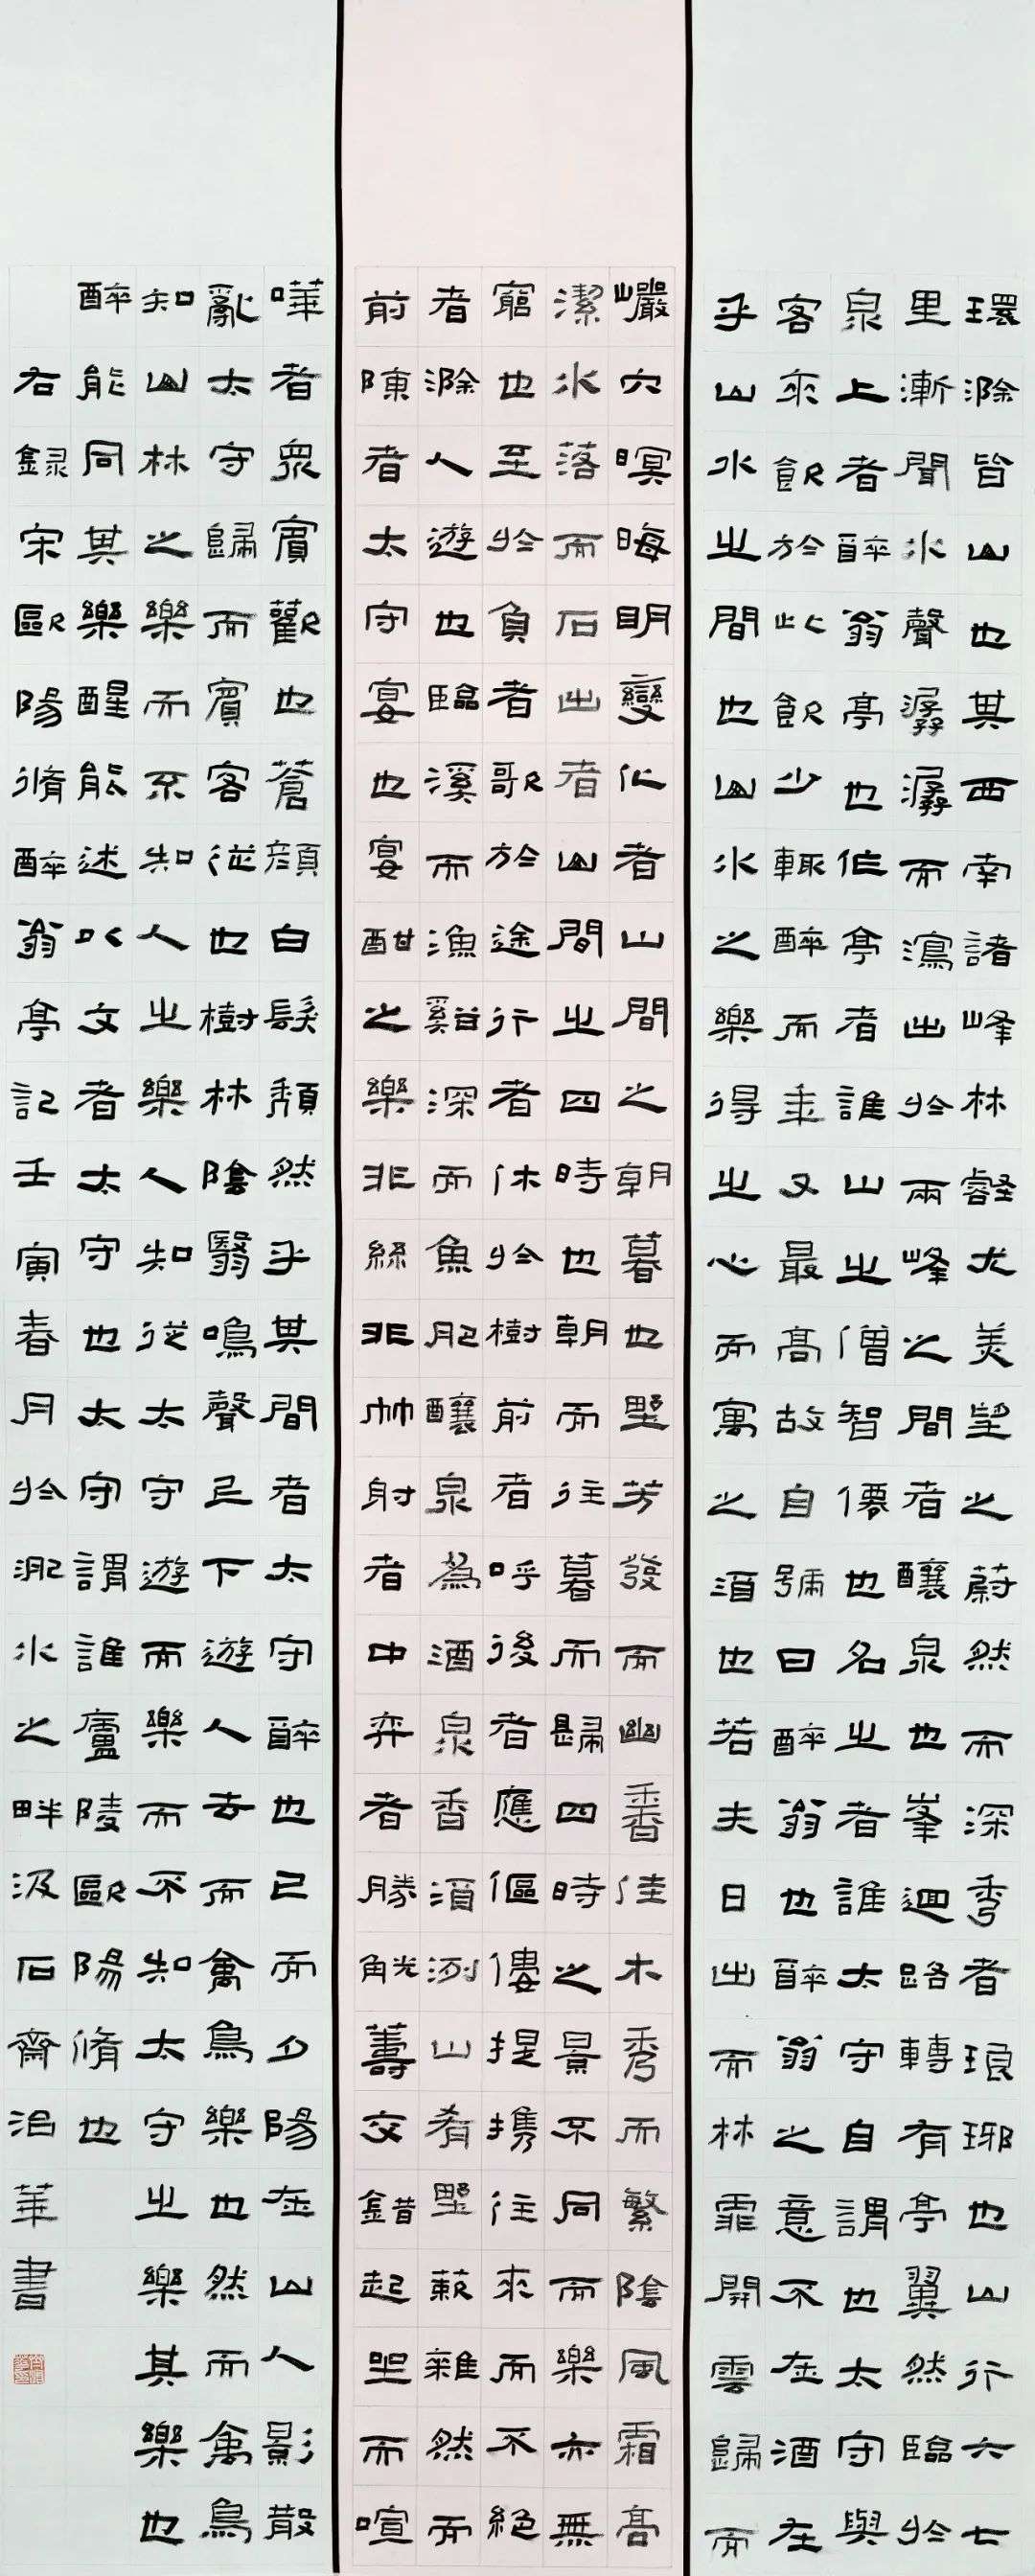 環滁皆山也其西南諸峰林壑尤美望之蔚然而深秀者琅琊也山行六七
里漸聞水聲潺潺而瀉出於兩峰之間者釀泉也峯迴路轉有亭翼然臨於
泉上者醉翁亭也作亭者誰山之僧智僊也名之者誰太守自謂也太守與
客來飲於此飲少輒醉而年又最高故自號曰醉翁也醉翁之意不在酒在
乎山水之間也山水之樂得之心而寓之酒也若夫日出而林霏開雲歸而
巖穴暝晦明變化者山間之朝暮也野芳發而幽香佳木秀而繁陰風霜高
潔水落而石出者山間之四時也朝而往暮而歸四時之景不同而樂亦無
窮也至於負者歌於途行者休於樹前者呼後者應傴僂提攜往來而不絕
者滁人遊也臨溪而漁谿深而魚肥釀泉為酒泉香酒洌山肴野蔌雜然而
前陳者太守宴也宴酣之樂非絲非竹射者中弈者勝觥籌交錯起坐而喧
嘩者眾賓歡也蒼顏白髮頹然乎其間者太守醉也已而夕陽在山人影散
亂太守歸而賓客從也樹林陰翳鳴聲上下遊人去而禽鳥樂也然而禽鳥
知山林之樂而不知人之樂人知從太守遊而樂而不知太守之樂其樂也
醉能同其樂醒能述以文者太守也太守謂誰廬陵歐陽脩也
右錄宋歐陽脩醉翁亭記壬寅春月於淝水之畔汲石齋治華書